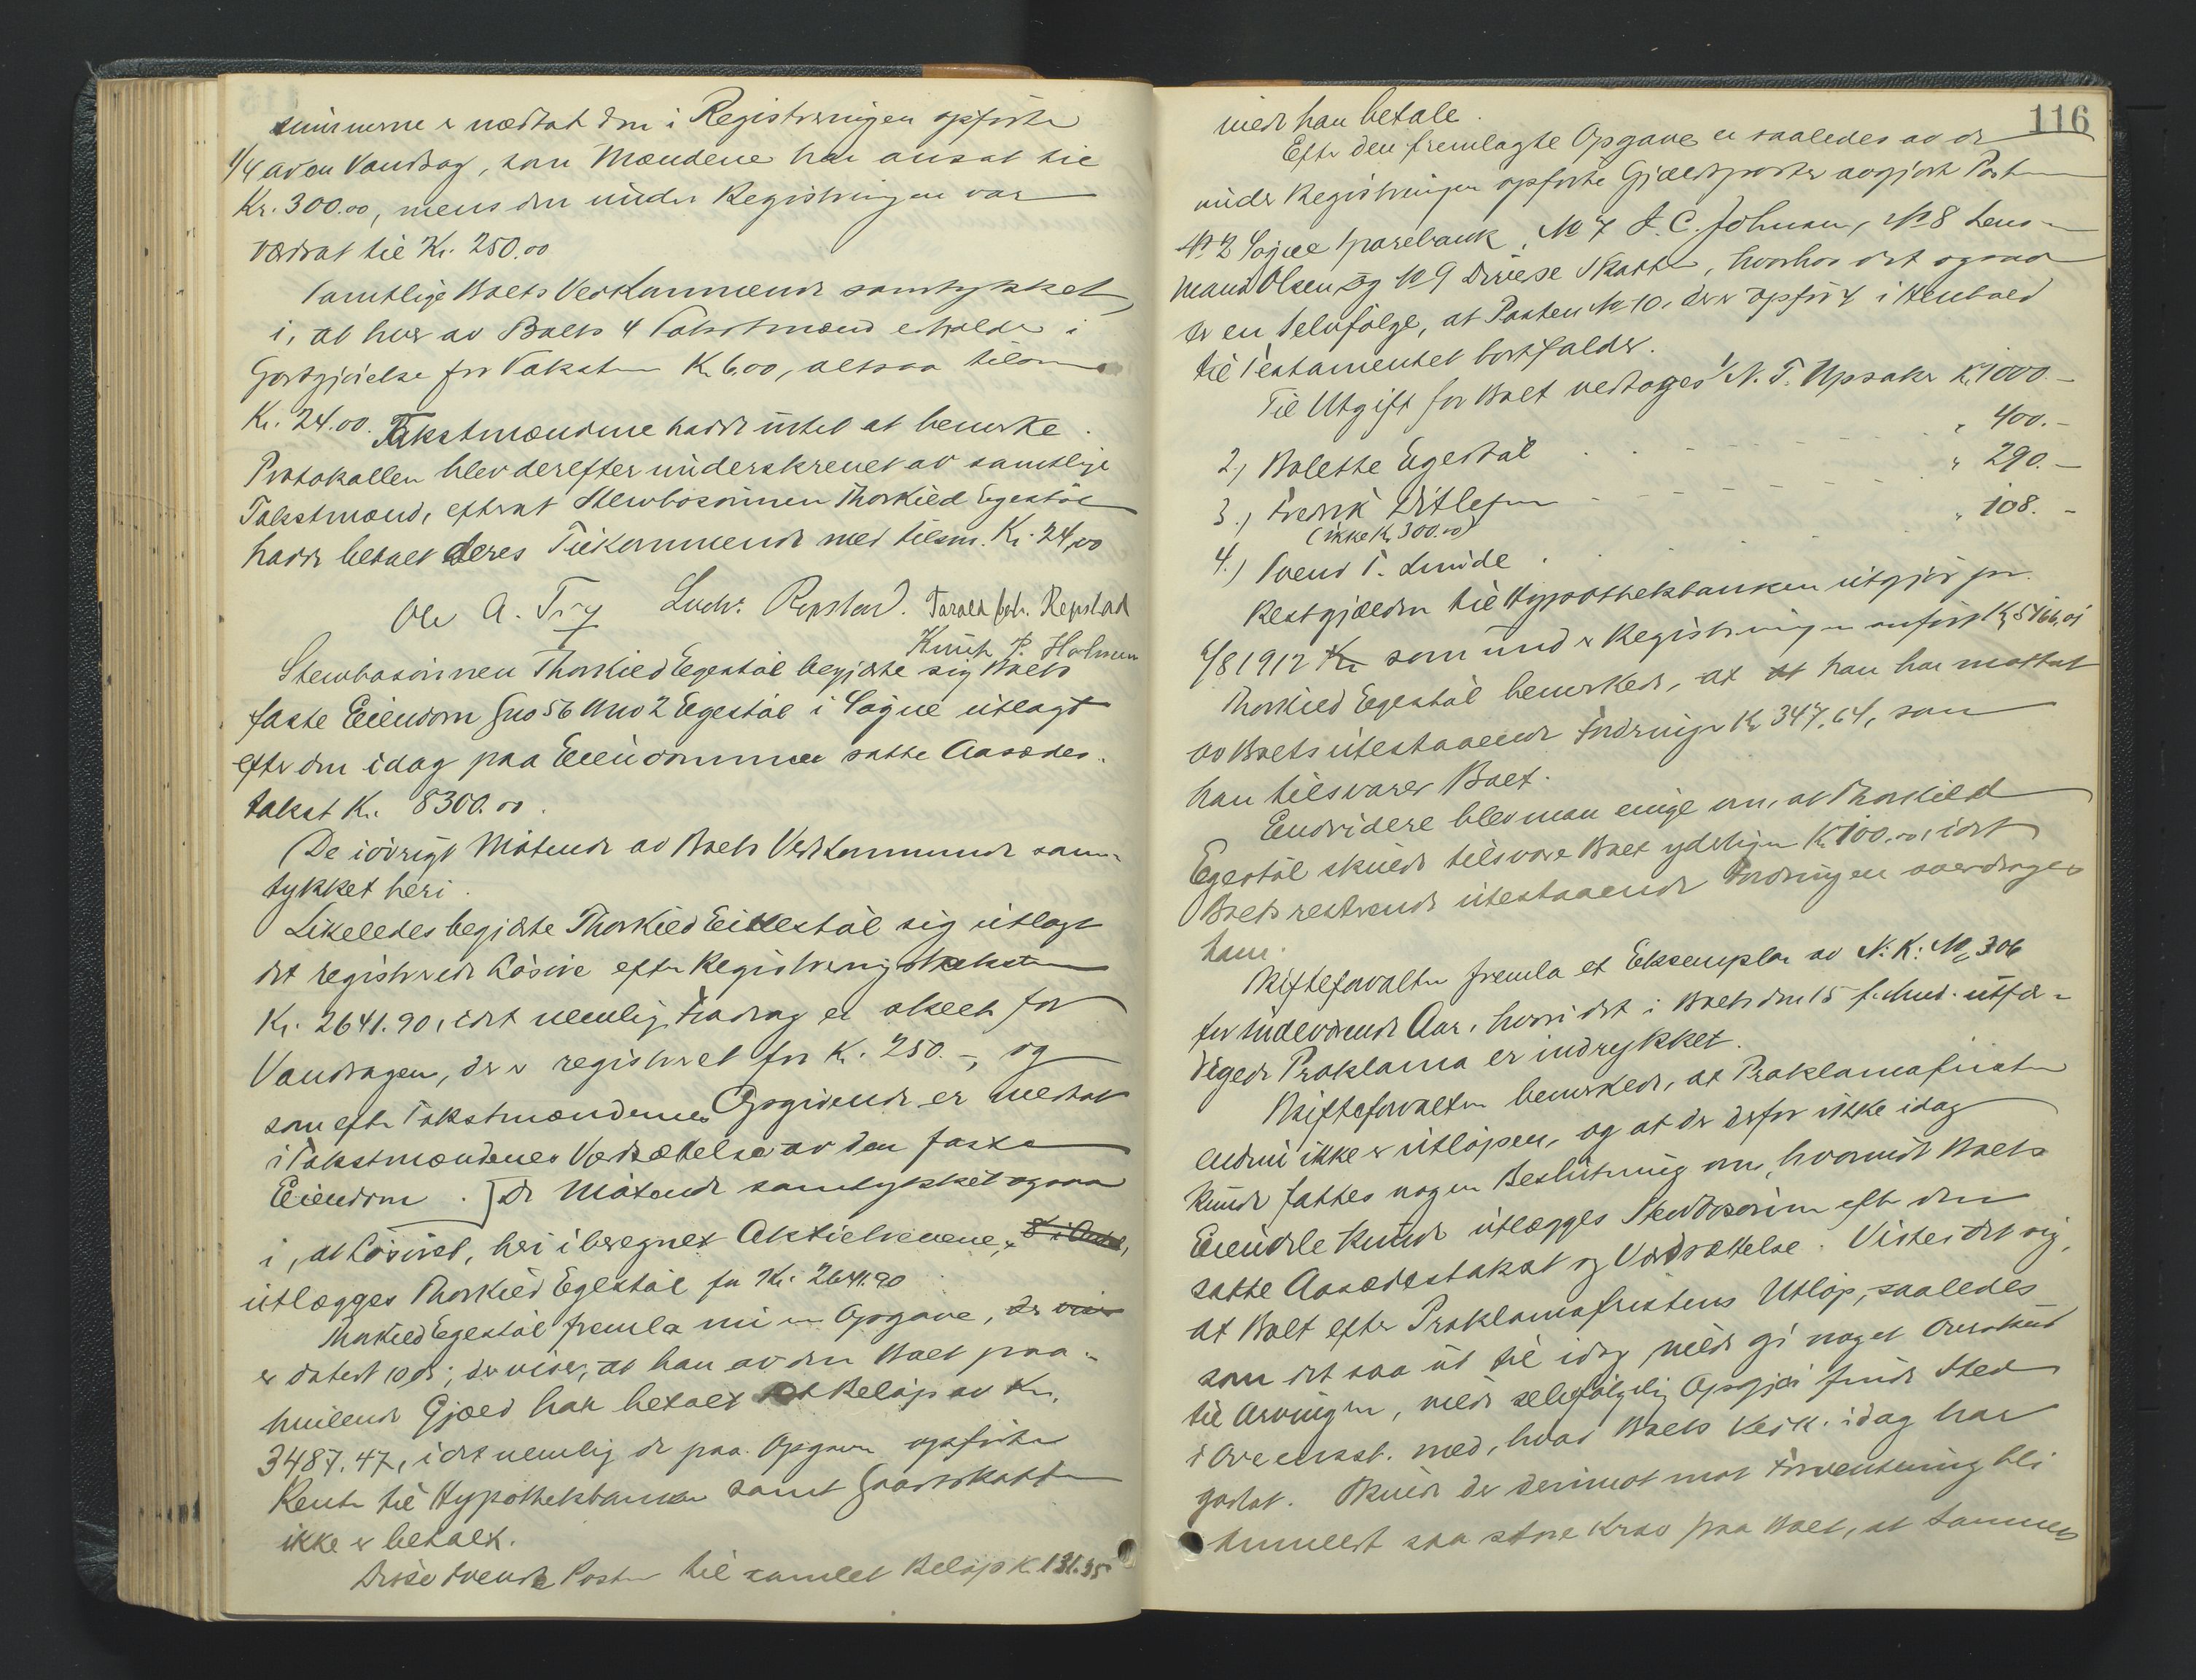 summerne er medtat den i Registreringen opførte
1/4 av en Vandsag, som Mændene har ansat til
Kr. 300.00, mens den under Registringen var
værdsat til Kr. 250.00
Samtlige Boets Vedkommende samtykket
i, at hver av Boets 4 Takstmænd erholder i
Godtgjørelse for Taksten Kr. 6.00, altsaa tilsm.
Kr. 24.00. Takstmændene hadde intet at bemerke.
Protokollen blev derefter underskrevet av samtlige
Takstmænd, efterat Stervbosønnen Thorkild Egestøl
hadde betalt deres Tilkommende med tilsm. Kr. 24,00
Ole A. Try Ludv. Repstad. Tarald Joh. Repstad
Knut P. Holmen
Stervbosønnen Thorkild Egestøl begjærte sig Boets
faste Eiendom Gno 56 Bno 2 Egestøl i Søgne utlagt
efter den idag paa Eiendommen satte Aasædes-
takst Kr. 8300.00.
De iøvrigt Møtende av Boets Vedkommende sam-
tykket heri.
Likeledes begjærte Thorkild Eikestøl sig utlagt
det registrerede Løsøre efter Registreringstaksten
Kr. 2641.90, idet nemlig Fradrag er skeet for
Vandsagen, der er registreret for Kr. 250.-, og
som efter Takstmændenes Opgivende er medtat
i Takstmændenes Værdsættelse av den faste
Eiendom.] De Møtende samtykket ogsaa
i, at Løsøret, heri iberegnet Aktiebrevene,
utlægges Thorkild Egestøl for Kr. 2641.90
Thorkild Egestøl fremla nu en Opgave, der viser
er datert 10 ds; der viser, at han av den Boet paa-
hvilende Gjæld har betalt et Beløp av Kr.
3487.47, idet nemlig de paa Opgaven opførte
Renter til Hypothekbanken samt Gaardsskatten
ikke er betalt.
Disse tvende Poster til samlet Beløp K. 131.35
116
vilde han betale.
Efter den fremlagte Opgave er saaledes av de
under Registringen opførte Gjældsposter avgjort Posten
№ 2 Søgne Sparebank, № 7 J. C. Johnsen, № 8 Lens-
mand Olsen og № 9 Diverse Skatter, hvorhos det ogsaa
er en Selvfølge, at Posten № 10, der er opført i Henhold
til Testamentet bortfalder.
Til Utgift for Boet vedtoges 1, N. T. Upsaker K. 1000.-
2, Bolette Egestøl " 400.-
3, Fredrik Ditlefsen " 290.-
(ikke Kr. 300.00)
4, Svend T. Lunde " 108.-
Restgjælden til Hypothekbanken utgjør pr.
1/8 1912 Kr. som under Registringen anført K. 5166,01
Thorkild Egestøl bemerkede, at at han har mottat
av Boets utestaaende Fordringer Kr. 347.64, som
han tilsvarer Boet.
Endvidere blev man enige om, at Thorkild
Egestøl skulde tilsvare Boet yderligere Kr. 100.00, idet
Boets resterende utestaaende Fordringer overdrages
ham.
Skifteforvalteren fremla et Eksemplar av N. K. № 306
for indeværende Aar, hvori det i Boet den 15 f. Md. utfær-
digede Proklama er indrykket.
Skifteforvalteren bemerkede, at Proklamafristen
endnu ikke er utløpen, og at der derfor ikke idag
kunde fattes nogen Beslutning om, hvorvidt Boets
Eiendele kunde utlægges Stervbosønnen efter den
satte Aasædestakst og Værdsættelse. Viste det sig,
at Boet efter Proklamafristens Utløp, saaledes
som det saa ut til idag, vilde gi noget Overskud
til Arvingerne, vilde selvfølgelig Opgjør finde Sted
i Overensst. med, hvad Boets Vedk. idag har
godtat. Skulde der derimot mot Forventning bli
anmeldt saa store Krav paa Boet, at Summen